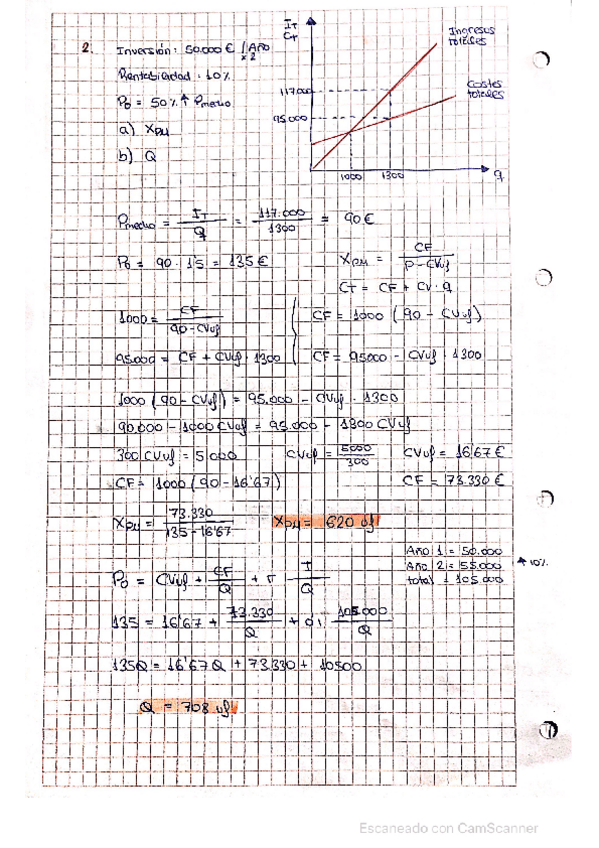 2. Inversión: 50.000 € / Año
x 2
Rentabilidad: 10%
Po = 50% ↑ Pmedio
a) XPM
b) Q
IT
CT
Ingresos
totales
Costes
totales
117.000
95.000
1000 1300 q
Pmedio = IT / Q = 117.000 / 1300 = 90 €
Po = 90 · 1'5 = 135 €
XPM = CF / P - CVuf
CT = CF + CV · q
1000 = CF / 90 - CVuf
CF = 1000 (90 - CVuf)
95.000 = CF + CVuf · 1300
CF = 95000 - CVuf · 1300
1000 (90 - CVuf) = 95.000 - CVuf · 1300
90.000 - 1000 CVuf = 95.000 - 1300 CVuf
300 CVuf = 5000
CVuf = 5000 / 300
CVuf = 16'67 €
CF = 1000 (90 - 16'67)
CF = 73.330 €
XPM = 73.330 / 135 - 16'67
XPM = 620 uf
Año 1 = 50.000
Año 2 = 55.000 ↑ 10%
total = 105.000
Po = CVuf + CF / Q + r I / Q
135 = 16'67 + 73.330 / Q + 0'1 105.000 / Q
135Q = 16'67Q + 73.330 + 10500
Q = 708 uf
Escaneado con CamScanner